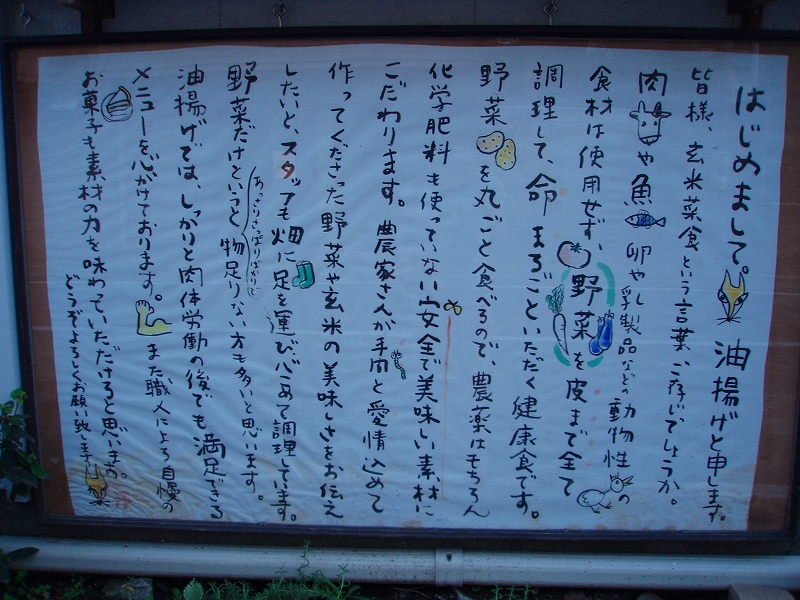 はじめまして。油揚げと申します。
皆様、玄米菜食という言葉ご存じでしょうか。
肉や魚卵や乳製品などの動物性の
食材は使用せず、野菜を皮まで全て
調理して、命まるごといただく健康食です。
野菜を丸ごと食べるので、農薬はもちろん
化学肥料も使っていない安全で美味しい素材に
こだわります。農家さんが手間と愛情込めて
作ってくださった野菜や玄米の美味しさをお伝え
したいと、スタッフも畑に足を運び心こめて調理しています。
野菜だけというと物足りない方も多いと思います。
あっさりさっぱりばかりじゃ
油揚げでは、しっかりと肉体労働の後でも満足できる
メニューを心がけております。また職人による自慢の
お菓子も素材の力を味わっていただけると思います。
どうぞよろしくお願い致します